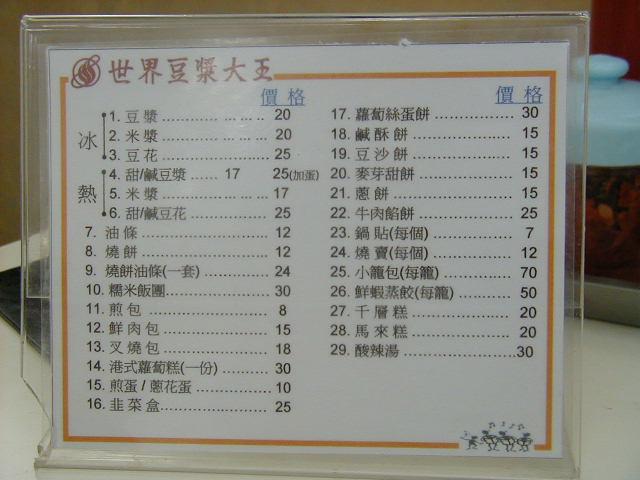 世界豆漿大王
價格
冰
1. 豆漿 ................ ... ... .. 20
2. 米漿 ................ ... ... .. 20
3. 豆花 .............................. 25
熱
4. 甜/鹹豆漿 ...... 17 25(加蛋)
5. 米漿 ................ ... ... ... 17
6. 甜/鹹豆花 ...................... 25
7. 油條 .............................. 12
8. 燒餅 .............................. 12
9. 燒餅油條(一套) ................ 24
10. 糯米飯團........................ 30
11. 煎包 ............................. 8
12. 鮮肉包 .......................... 15
13. 叉燒包 .......................... 18
14. 港式蘿蔔糕(一份) ............ 30
15. 煎蛋 / 蔥花蛋 ................. 10
16. 韭菜盒........................... 25
價格
17. 蘿蔔絲蛋餅 .................... 30
18. 鹹酥餅 .......................... 15
19. 豆沙餅 .......................... 15
20. 麥芽甜餅 ....................... 15
21. 蔥餅 ............................. 15
22. 牛肉餡餅 ....................... 25
23. 鍋貼(每個) ..................... 7
24. 燒賣(每個) ..................... 12
25. 小籠包(每籠) .................. 70
26. 鮮蝦蒸餃(每籠) ............... 50
27. 千層糕 .......................... 20
28. 馬來糕 .......................... 20
29. 酸辣湯 ..........................30